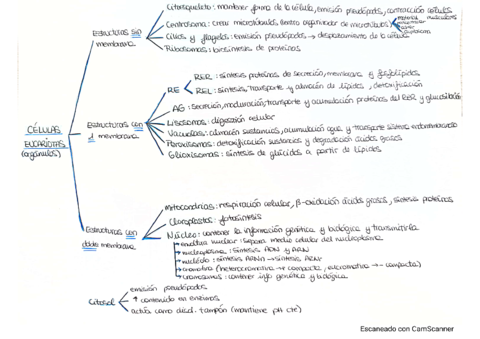 Citoesqueleto: mantener forma de la célula, emisión pseudópodos, contracción células musculares
Centrosoma: crear microtúbulos (centro organizador de microtúbulos)
material
centriolar
Estructuras sin
membrana
Cilios y flagelos: emisión pseudópodos → desplazamiento de la célula
Ribosomas: biosíntesis de proteínas
RER: síntesis proteínas de secreción, membrana y fosfolípidos
RE
REL: síntesis, transporte y almacén de lípidos, detoxificación
AG: secreción, maduración, transporte y acumulación proteínas del RER y glucosilación
Estructuras con
1 membrana
Lisosomas: digestión celular
CÉLULAS
EUCARIOTAS
(orgánulos)
Vacuolas: almacén sustancias, acumulación agua y transporte sistema endomembranoso
Peroxisomas: detoxificación sustancias y degradación ácidos grasos
Glioxisomas: síntesis de glúcidos a partir de lípidos
Mitocondrias: respiración celular, β-oxidación ácidos grasos, síntesis proteínas
Cloroplastos: fotosíntesis
Estructuras con
doble membrana
Núcleo: contener la información genética y biológica y transmitirla
envoltura nuclear: separa medio celular del nucleoplasma
nucleoplasma: síntesis ADN y ARN
nucléolo: síntesis ARNn → síntesis ARNr
cromatina (heterocromatina → compacta, eucromatina → - compacta)
cromosomas: contener info genética y biológica
Citosol
emisión pseudópodos
↑ contenido en enzimas
actúa como disol. tampón (mantiene pH cte)
Escaneado con CamScanner